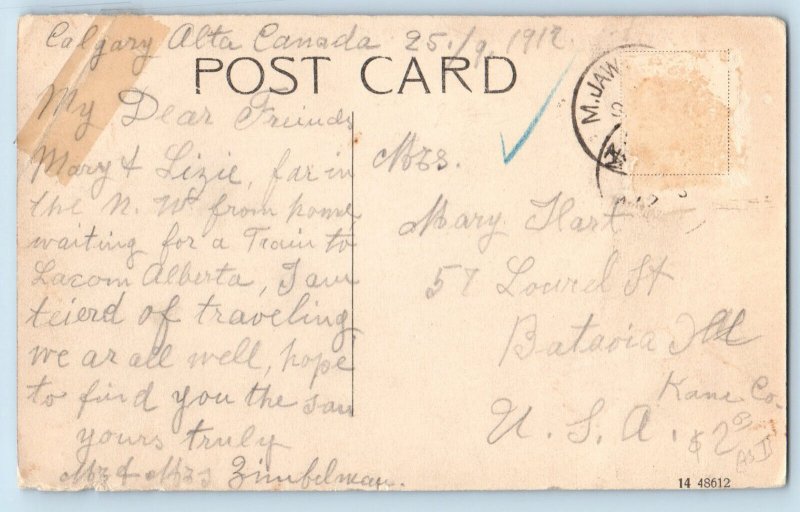 Calgary Alta Canada 25./9. 1912
POST CARD
My Dear Freinds
Mary & Lizie, far in
the N. W. from home
waiting for a Train to
Lacom Alberta, I am
teierd of traveling
we ar all well, hope
to find you the sam
yours truly
Mr & Mrs Zimbelman.
M. JAW
Mrs.
Mary Hart
57 Lourel St
Batavia Ill
Kane Co.
U. S. A.
14 48612